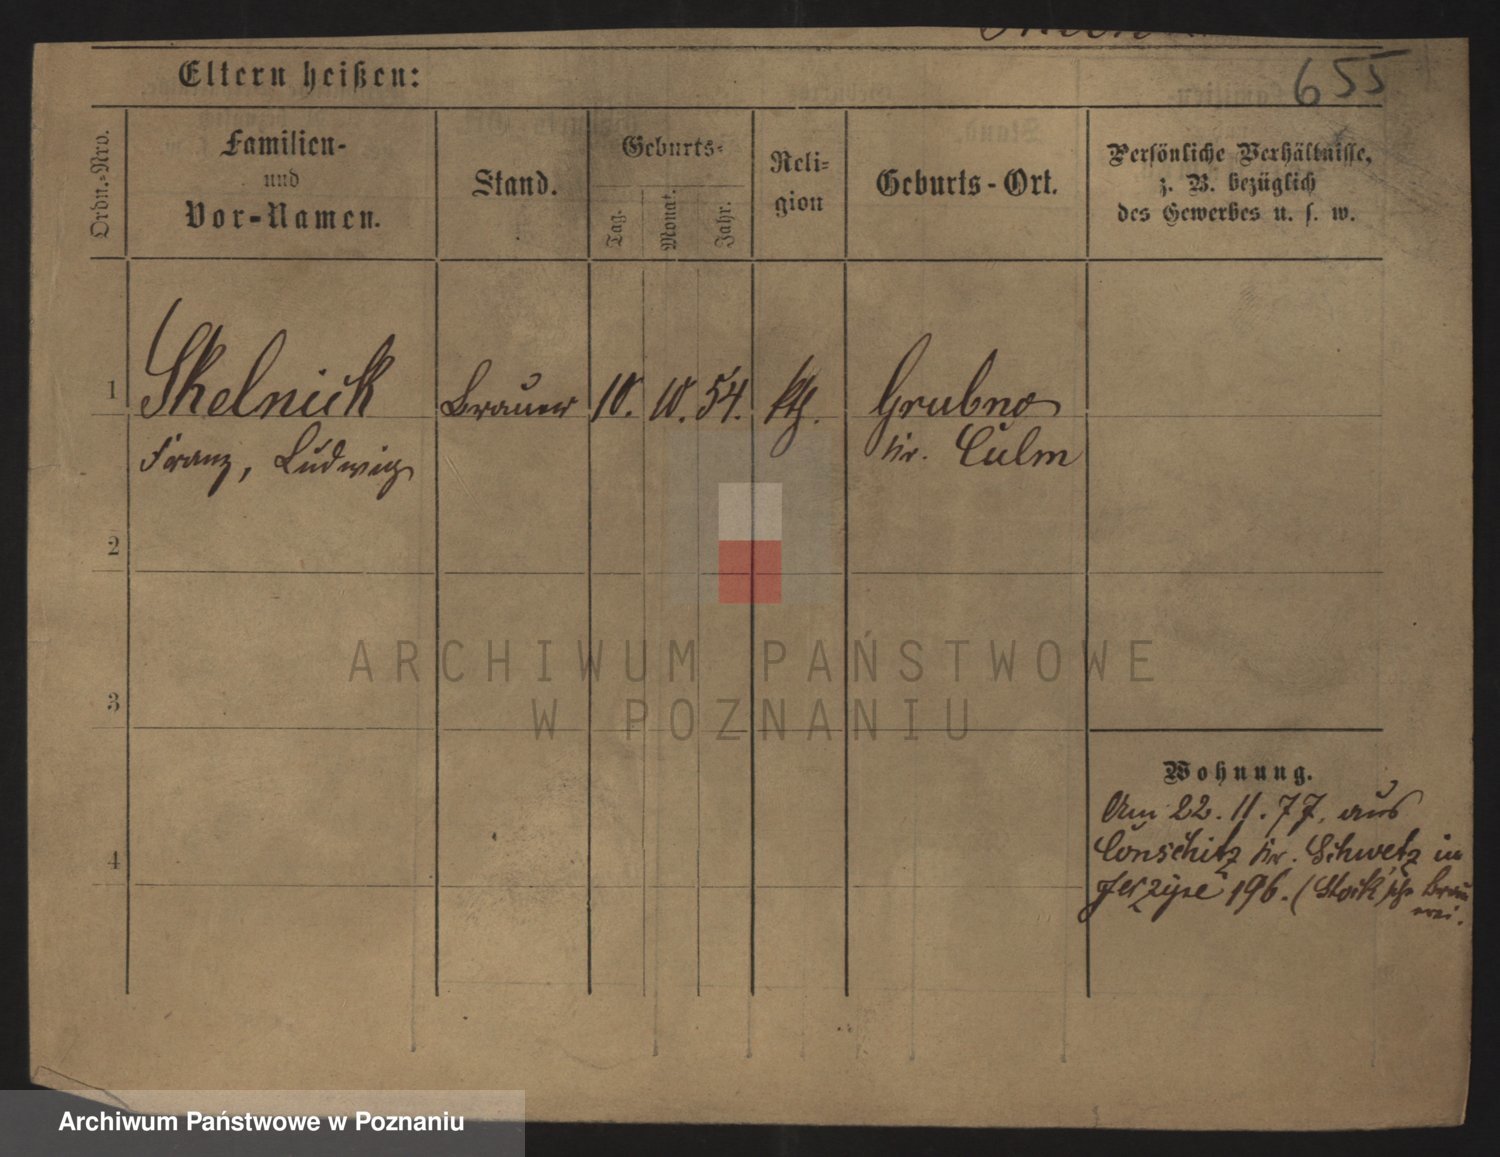 655
Eltern heißen:
Ordn.-Nro.
Familien-
und
Vor-Namen.
Stand.
Geburts-
Tag.
Monat.
Jahr.
Reli-
gion
Geburts-Ort.
Persönliche Verhältnisse,
z. B. bezüglich
des Gewerbes u. s. w.
1 Skelnick Brauer 10. 10. 54. kth. Grubno
Franz, Ludwig Kr. Culm
2
3
4
Wohnung.
Am 22. 11. 77. aus
Conschitz Kr. Schwetz in
Jerzyce 196. (Stock'sche Brau
erei.
ARCHIWUM PAŃSTWOWE
W POZNANIU
Archiwum Państwowe w Poznaniu